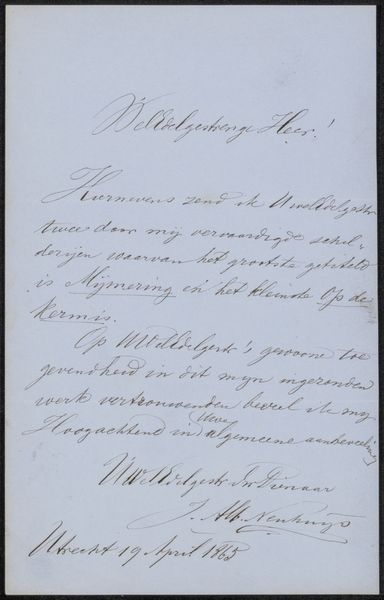 WelEdelgestrenge Heer!
Hiernevens zend ik UwelEdelgestr
twee door mij vervaardigde schil„
derijen waarvan het grootste getiteld
is Mijmering en het kleinste Op de
Kermis.
Op UWelEdelgestr's gewone toe
gevendheid in dit mijn ingezonden
werk vertrouwenden beveel ik mij
Hoogachtend in Uwe algemeene aanbeveeling
UwelEdelgestr Dw Dienaar
J. Alb. Neuhuijs
Utrecht 19 April 1865